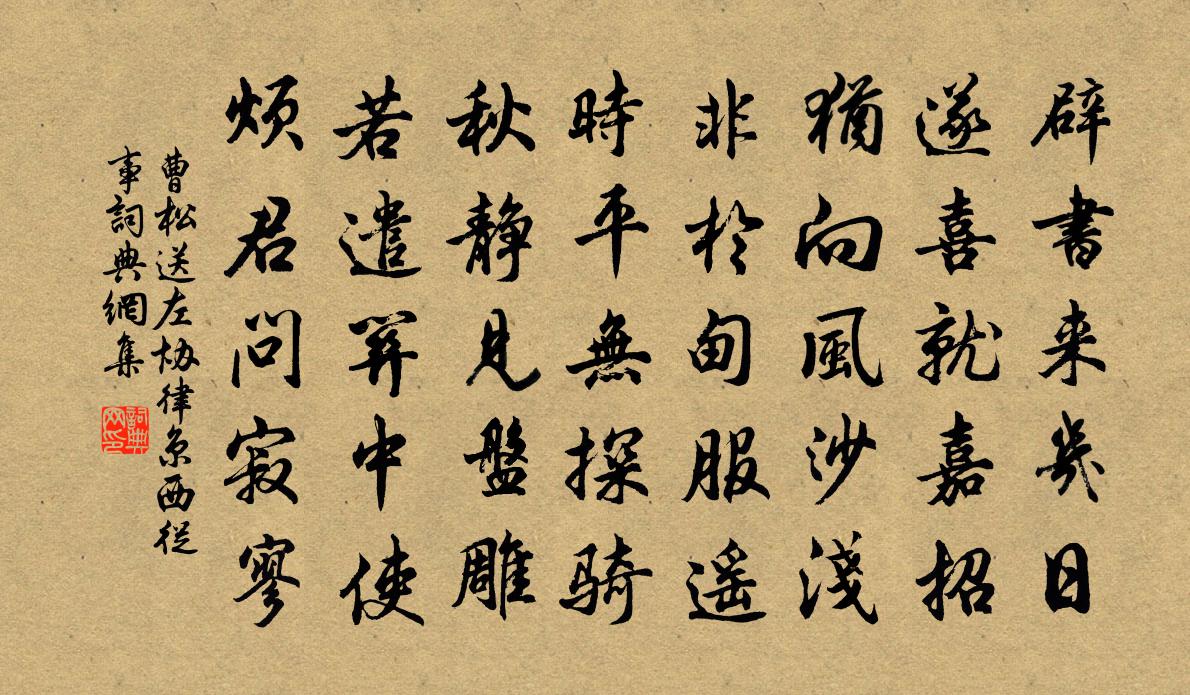 辟書来幾日
遂喜就嘉招
猶向風沙淺
非於甸服遥
時平無探騎
秋靜見盤雕
若遣笄中使
煩君問寂寥
曹松送左協律京西從
事詞典網集
詞典
网印